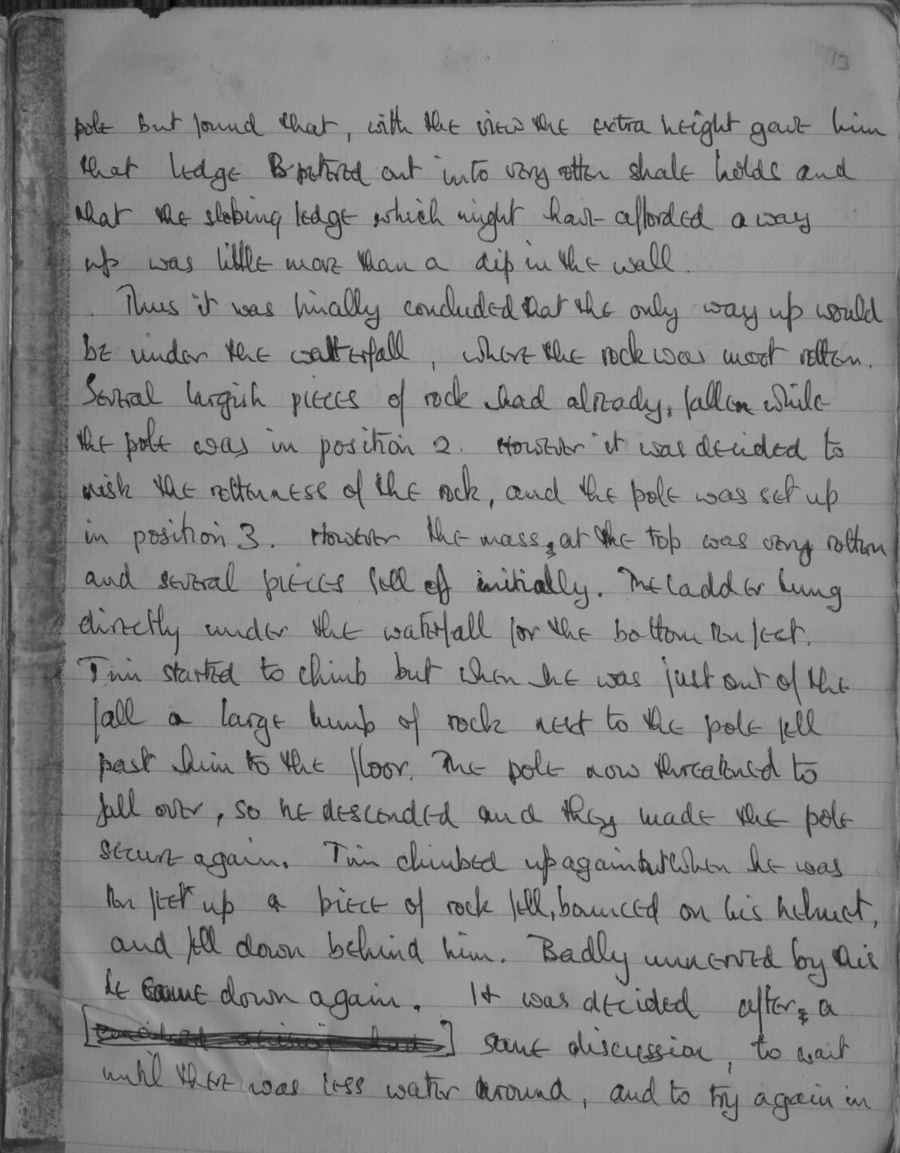 13
pole but found that, with the view the extra height gave him
that ledge petered out into very rotten shale holds and
that the sloping ledge which might have afforded a way
up was little more than a dip in the wall.
Thus it was finally concluded that the only way up would
be under the waterfall, where the rock was most rotten.
Several largish pieces of rock had already, fallen while
the pole was in position 2. However it was decided to
risk the rottenness of the rock, and the pole was set up
in position 3. However the mass, at the top was very rotten
and several pieces fell off initially. The ladder hung
directly under the waterfall for the bottom ten feet.
Tim started to climb but when he was just out of the
fall a large lump of rock next to the pole fell
past him to the floor. The pole now threatened to
fall over, so he descended and they made the pole
secure again. Tim climbed up again but when he was
ten feet up a piece of rock fell, bounced on his helmet,
and fell down behind him. Badly unnerved by this
he came down again. It was decided after a
some discussion, to wait
until there was less water around, and to try again in